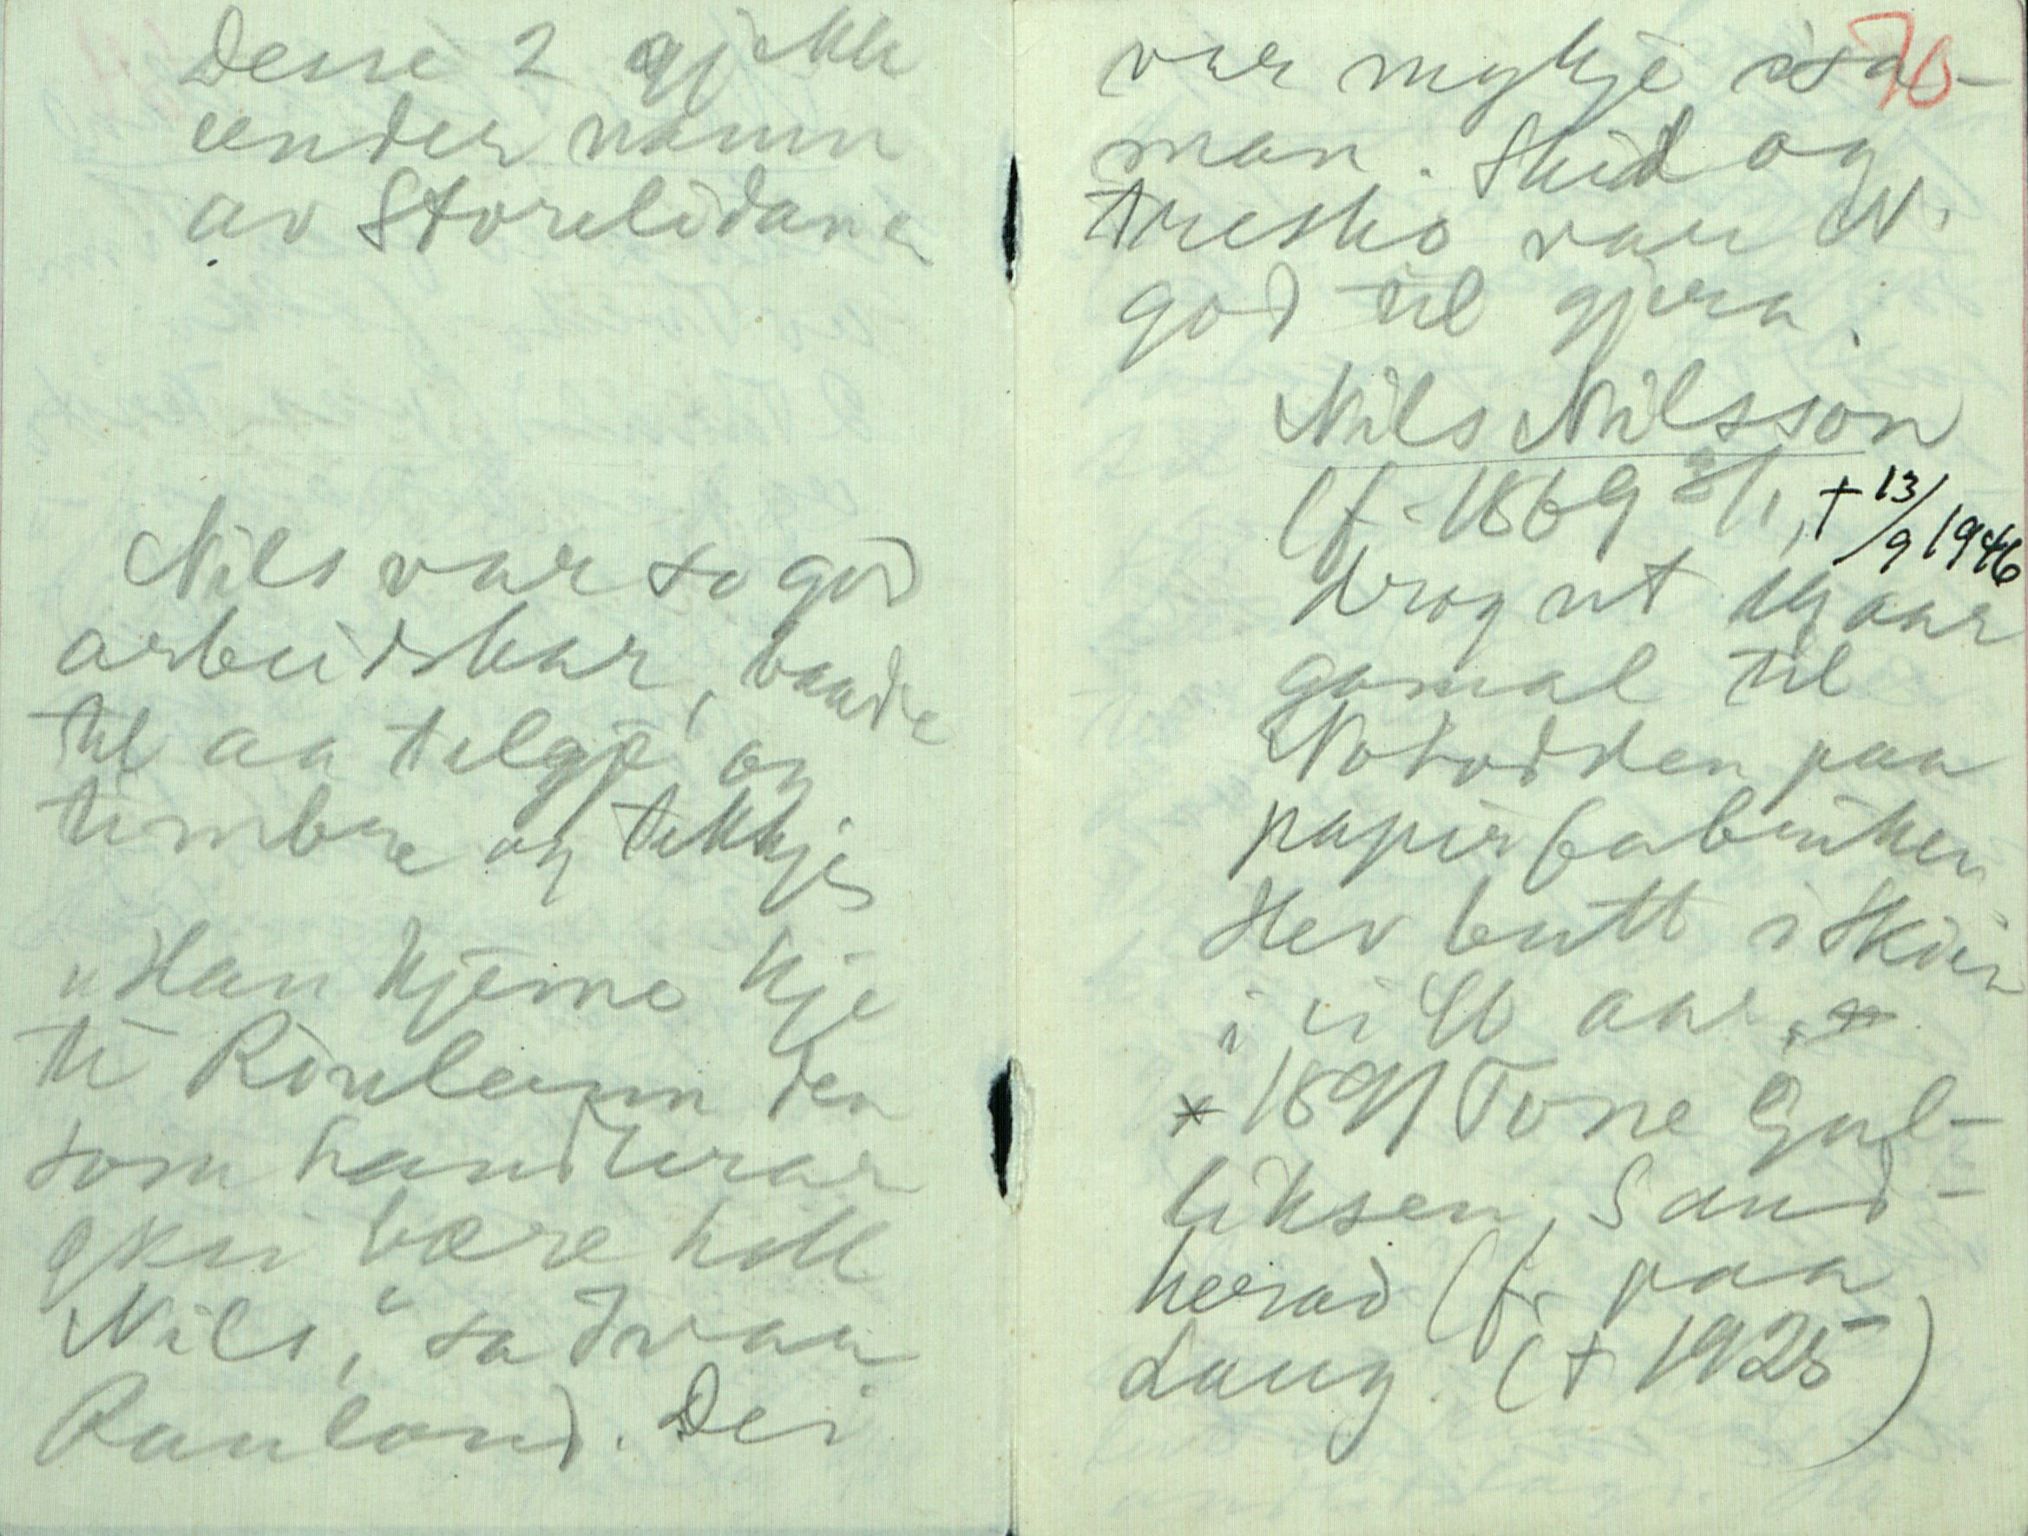 Desse 2 gjekk
under namn
av Storelidane
Nils var so god
arbeidskar, baade
til aa telgje og
timbre og tekkje
"Han kjeme kje
te Rouleunn den
som handterar
øksi bære hell
Nils," sa dvaa
Rauland. Dei
70
var mykje isa-
man. Skid og
tresko var N.
god til gjera.
Nils Nilsson
(f. 1869 3/1, † 13/9 1946
drog ut 19 aar
gamal til
Notodden paa
papirfabriken
Hev butt i Skien
i 46 aar.
* 1891 Tone Gul-
liksen, Sand-
herad (f. paa
Laug. († 1925)